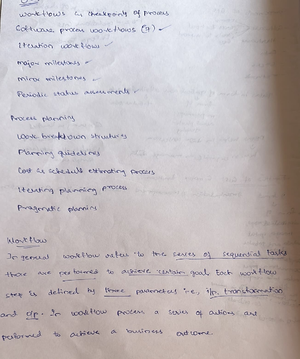 Workflows & checkpoints of process
Software process workflows (7)
Iteration workflow
Major milestones
Minor milestones
Periodic status assessments
Process planning
Work breakdown structure
Planning guidelines
Cost & schedule estimating process
Iteration planning process
Pragmatic planning
Workflow
In general workflow refers to the series of sequential tasks
those are performed to achieve certain goal. Each workflow
step is defined by three parameters i.e., i/p, transformation
and o/p. In workflow process a series of actions are
performed to achieve a business outcome.